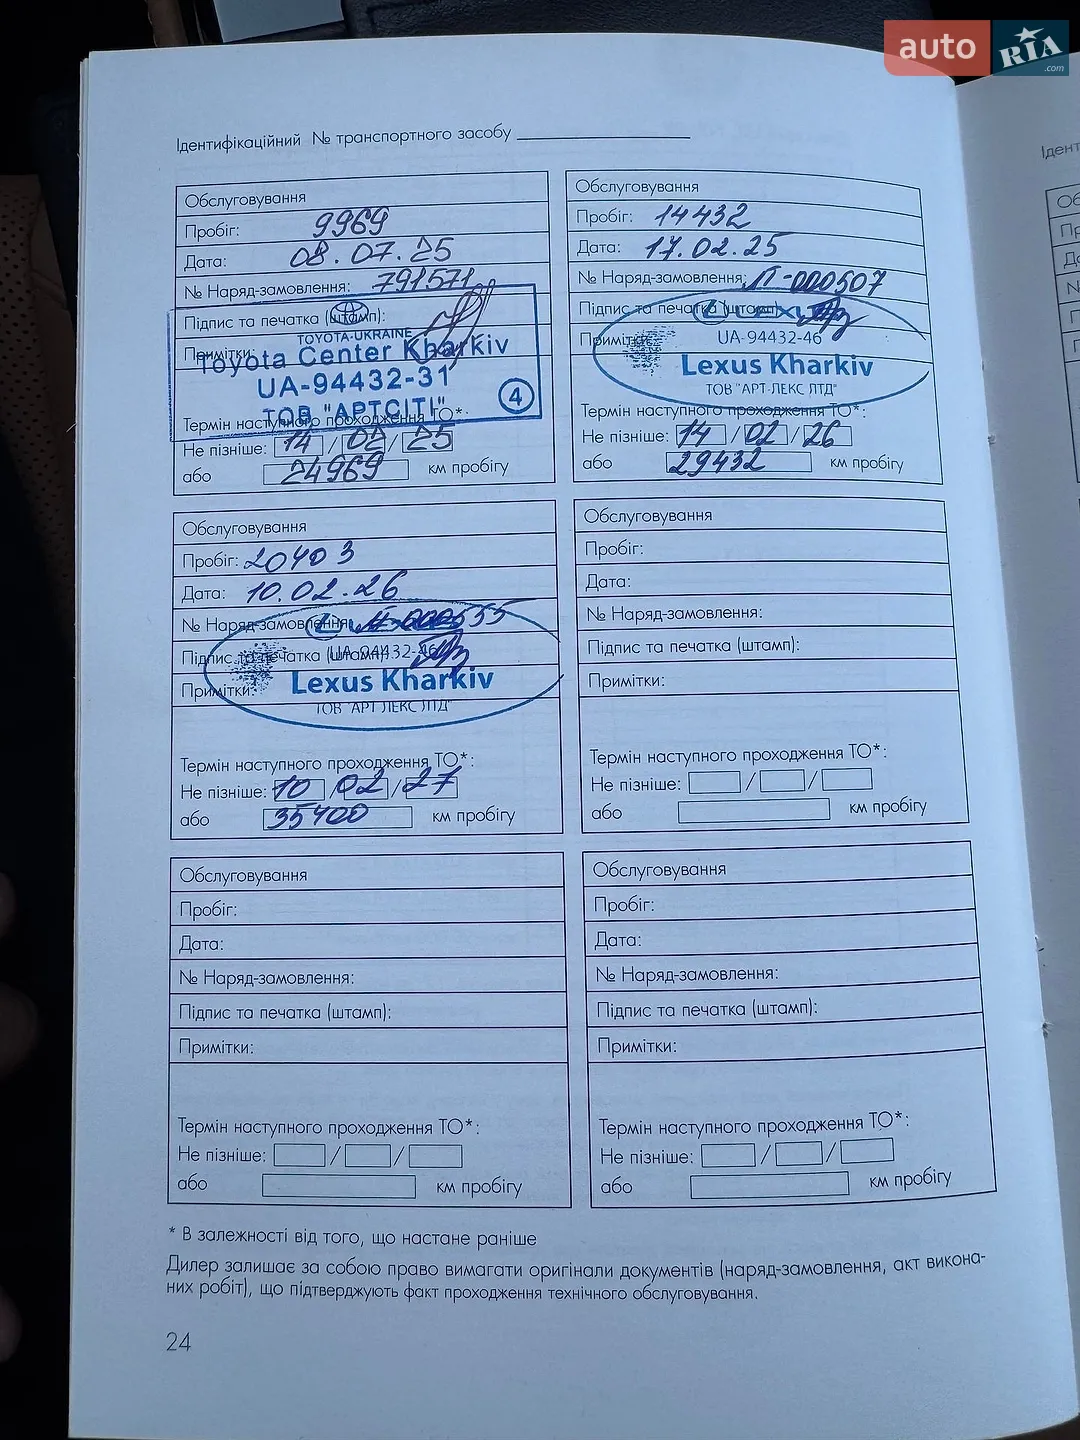 auto RIA.com
Ідентифікаційний № транспортного засобу
Ідент
Обслуговування
Пробіг: 9969
Дата: 08.07.25
№ Наряд-замовлення: 791571
Підпис та печатка (штамп):
TOYOTA-UKRAINE
Примітки:
Toyota Center Kharkiv
UA-94432-31
ТОВ "АРТСІТІ"
4
Термін наступного проходження ТО*:
Не пізніше: 14 / 02 / 25
або 24969 км пробігу
Обслуговування
Пробіг: 14432
Дата: 17.02.25
№ Наряд-замовлення: Л-000507
Підпис та печатка (штамп):
Примітки:
UA-94432-46
Lexus Kharkiv
ТОВ "АРТ ЛЕКС ЛТД"
Термін наступного проходження ТО*:
Не пізніше: 14 / 02 / 26
або 29432 км пробігу
Обслуговування
Пробіг: 20403
Дата: 10.02.26
№ Наряд-замовлення:
Підпис та печатка (штамп):
UA-94432-46
Примітки:
Lexus Kharkiv
ТОВ "АРТ ЛЕКС ЛТД"
Термін наступного проходження ТО*:
Не пізніше: 10 / 02 / 27
або 35400 км пробігу
Обслуговування
Пробіг:
Дата:
№ Наряд-замовлення:
Підпис та печатка (штамп):
Примітки:
Термін наступного проходження ТО*:
Не пізніше: / /
або км пробігу
Обслуговування
Пробіг:
Дата:
№ Наряд-замовлення:
Підпис та печатка (штамп):
Примітки:
Термін наступного проходження ТО*:
Не пізніше: / /
або км пробігу
Обслуговування
Пробіг:
Дата:
№ Наряд-замовлення:
Підпис та печатка (штамп):
Примітки:
Термін наступного проходження ТО*:
Не пізніше: / /
або км пробігу
* В залежності від того, що настане раніше
Дилер залишає за собою право вимагати оригінали документів (наряд-замовлення, акт викона-
них робіт), що підтверджують факт проходження технічного обслуговування.
24